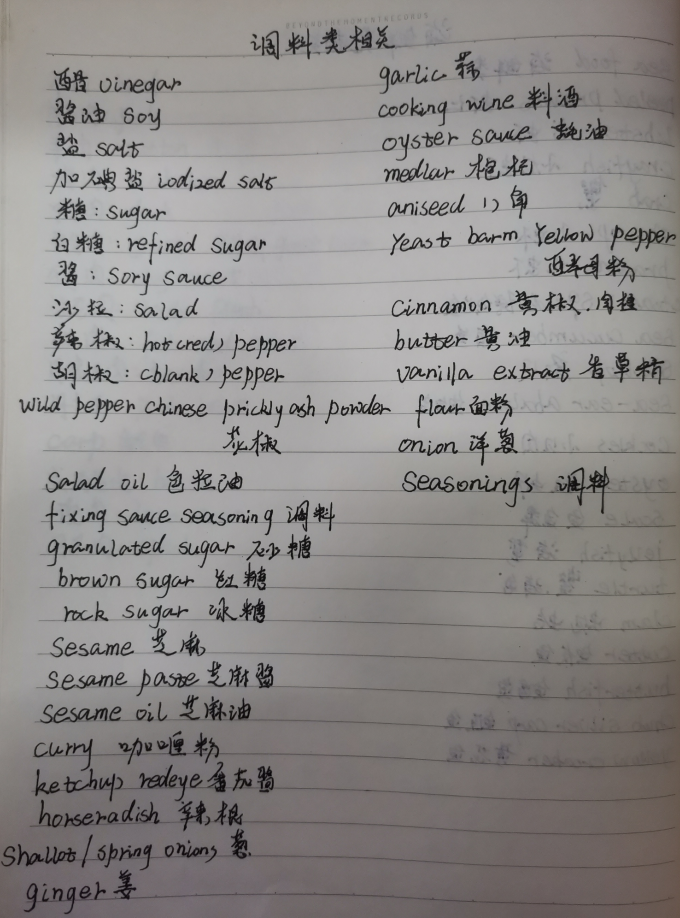 调料类相关
醋 vinegar
酱油 soy
盐 salt
加碘盐 iodized salt
糖: sugar
白糖: refined sugar
酱: sory sauce
沙拉: salad
辣椒: hot cred) pepper
胡椒: cblank) pepper
wild pepper chinese prickly ash powder
花椒
Salad oil 色拉油
fixing sauce seasoning 调料
granulated sugar 砂糖
brown sugar 红糖
rock sugar 冰糖
Sesame 芝麻
Sesame paste 芝麻酱
Sesame oil 芝麻油
curry 咖喱粉
ketchup redeye 番茄酱
horseradish 辣根
Shallot/spring onions 葱
ginger 姜
garlic 蒜
cooking wine 料酒
oyster sauce 蚝油
medlar 枸杞
aniseed 八角
Yeast barm Yellow pepper
酵母粉
Cinnamon 黄椒. 肉桂
butter 黄油
vanilla extract 香草精
flour 面粉
onion 洋葱
Seasonings 调料